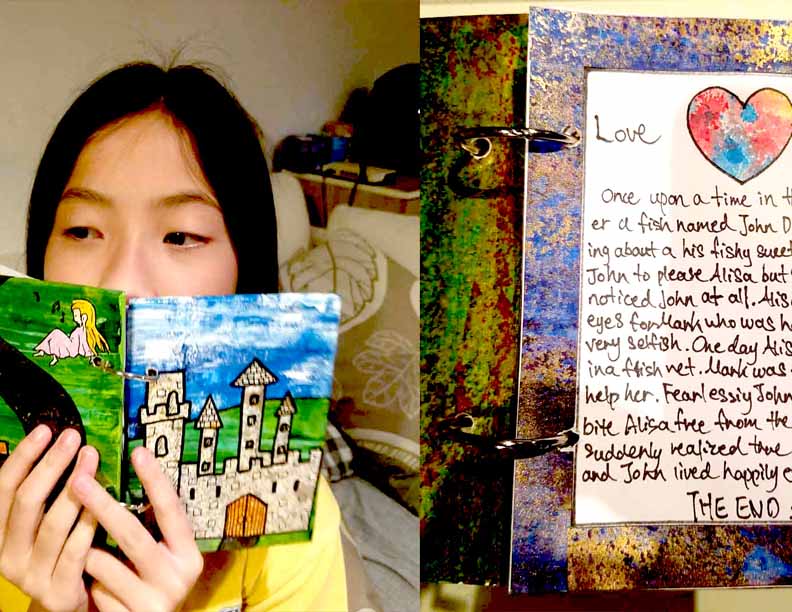 Love
Once upon a time in th
er a fish named John D
ing about a his fishy sweet
John to please Alisa but
noticed John at all. Alis
eyes for Mark who was ha
very selfish. One day Alis
in a fhish net. Mark was
help her. Fearlessiy John
bite Alisa free from the
suddenly realized true
and John lived happily e
THE END